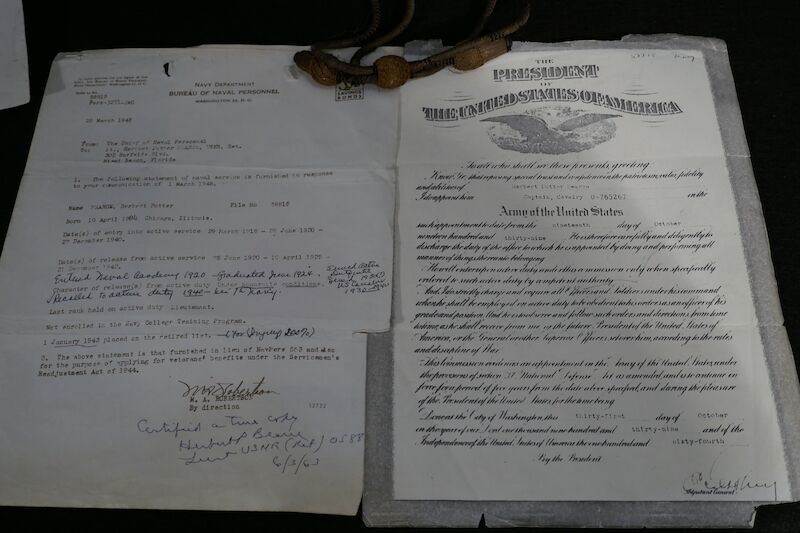 NAVY DEPARTMENT
BUREAU OF NAVAL PERSONNEL
WASHINGTON 25, D. C.
SAVINGS
BONDS
58818
25 March 1948
From: The Chief of Naval Personnel
To: Lt. Herbert Potter USNR, Ret.
Florida
1. The following statement of naval service is furnished in response
to your communication of 1 March 1948.
Name PEARCE, Herbert Potter File No 58818
Born 10 April Chicago, Illinois.
Date(s) of entry into active service 29 March 1918 - 25 June 1920 -
27 December 1940.
Date(s) of release from active service
December 1942.
Entered Naval Academy 1920 - Graduated June 1924.
Character of release(s) from active duty Under honorable conditions.
Recalled to active duty 1940 -
Last rank held on active duty Lieutenant.
Not enrolled in the Navy College Training Program.
1 January 1943 placed on the retired list.
2. The above statement is that furnished in lieu of NavPers 553 and also
for the purpose of applying for veterans' benefits under the Servicemen's
Readjustment Act of 1944.
M. A. ROBERTSON
By direction
Certified a true copy
Herbert P
Lieut USNR (Ret)
6/3/63
THE
PRESIDENT
OF
THE UNITED STATES OF AMERICA
To all who shall see these presents, greeting:
Know Ye, that reposing special trust and confidence in the patriotism, valor, fidelity
and abilities of Herbert Potter Pearce
I do appoint him Captain, Cavalry O-765267 in the
Army of the United States
such appointment to date from the nineteenth day of October
nineteen hundred and thirty-nine. He is therefore carefully and diligently to
discharge the duty of the office to which he is appointed by doing and performing all
manner of things thereunto belonging.
He will enter upon active duty under this commission only when specifically
ordered to such active duty by competent authority.
And I do strictly charge and require all Officers and Soldiers under his command
when he shall be employed on active duty to be obedient to his orders as an officer of his
grade and position. And he is to observe and follow such orders and directions, from time
to time, as he shall receive from me, or the future President of the United States of
America, or the General or other Superior Officers set over him, according to the rules
and discipline of War.
This Commission evidences an appointment in the Army of the United States, under
the provisions of section 37, National Defense Act, as amended, and is to continue in
force for a period of five years from the date above specified, and during the pleasure
of the President of the United States, for the time being.
Done at the City of Washington, this thirty-first day of October
in the year of our Lord one thousand nine hundred and thirty-nine and of the
Independence of the United States of America the one hundred and sixty-fourth
By the President:
Adjutant General.